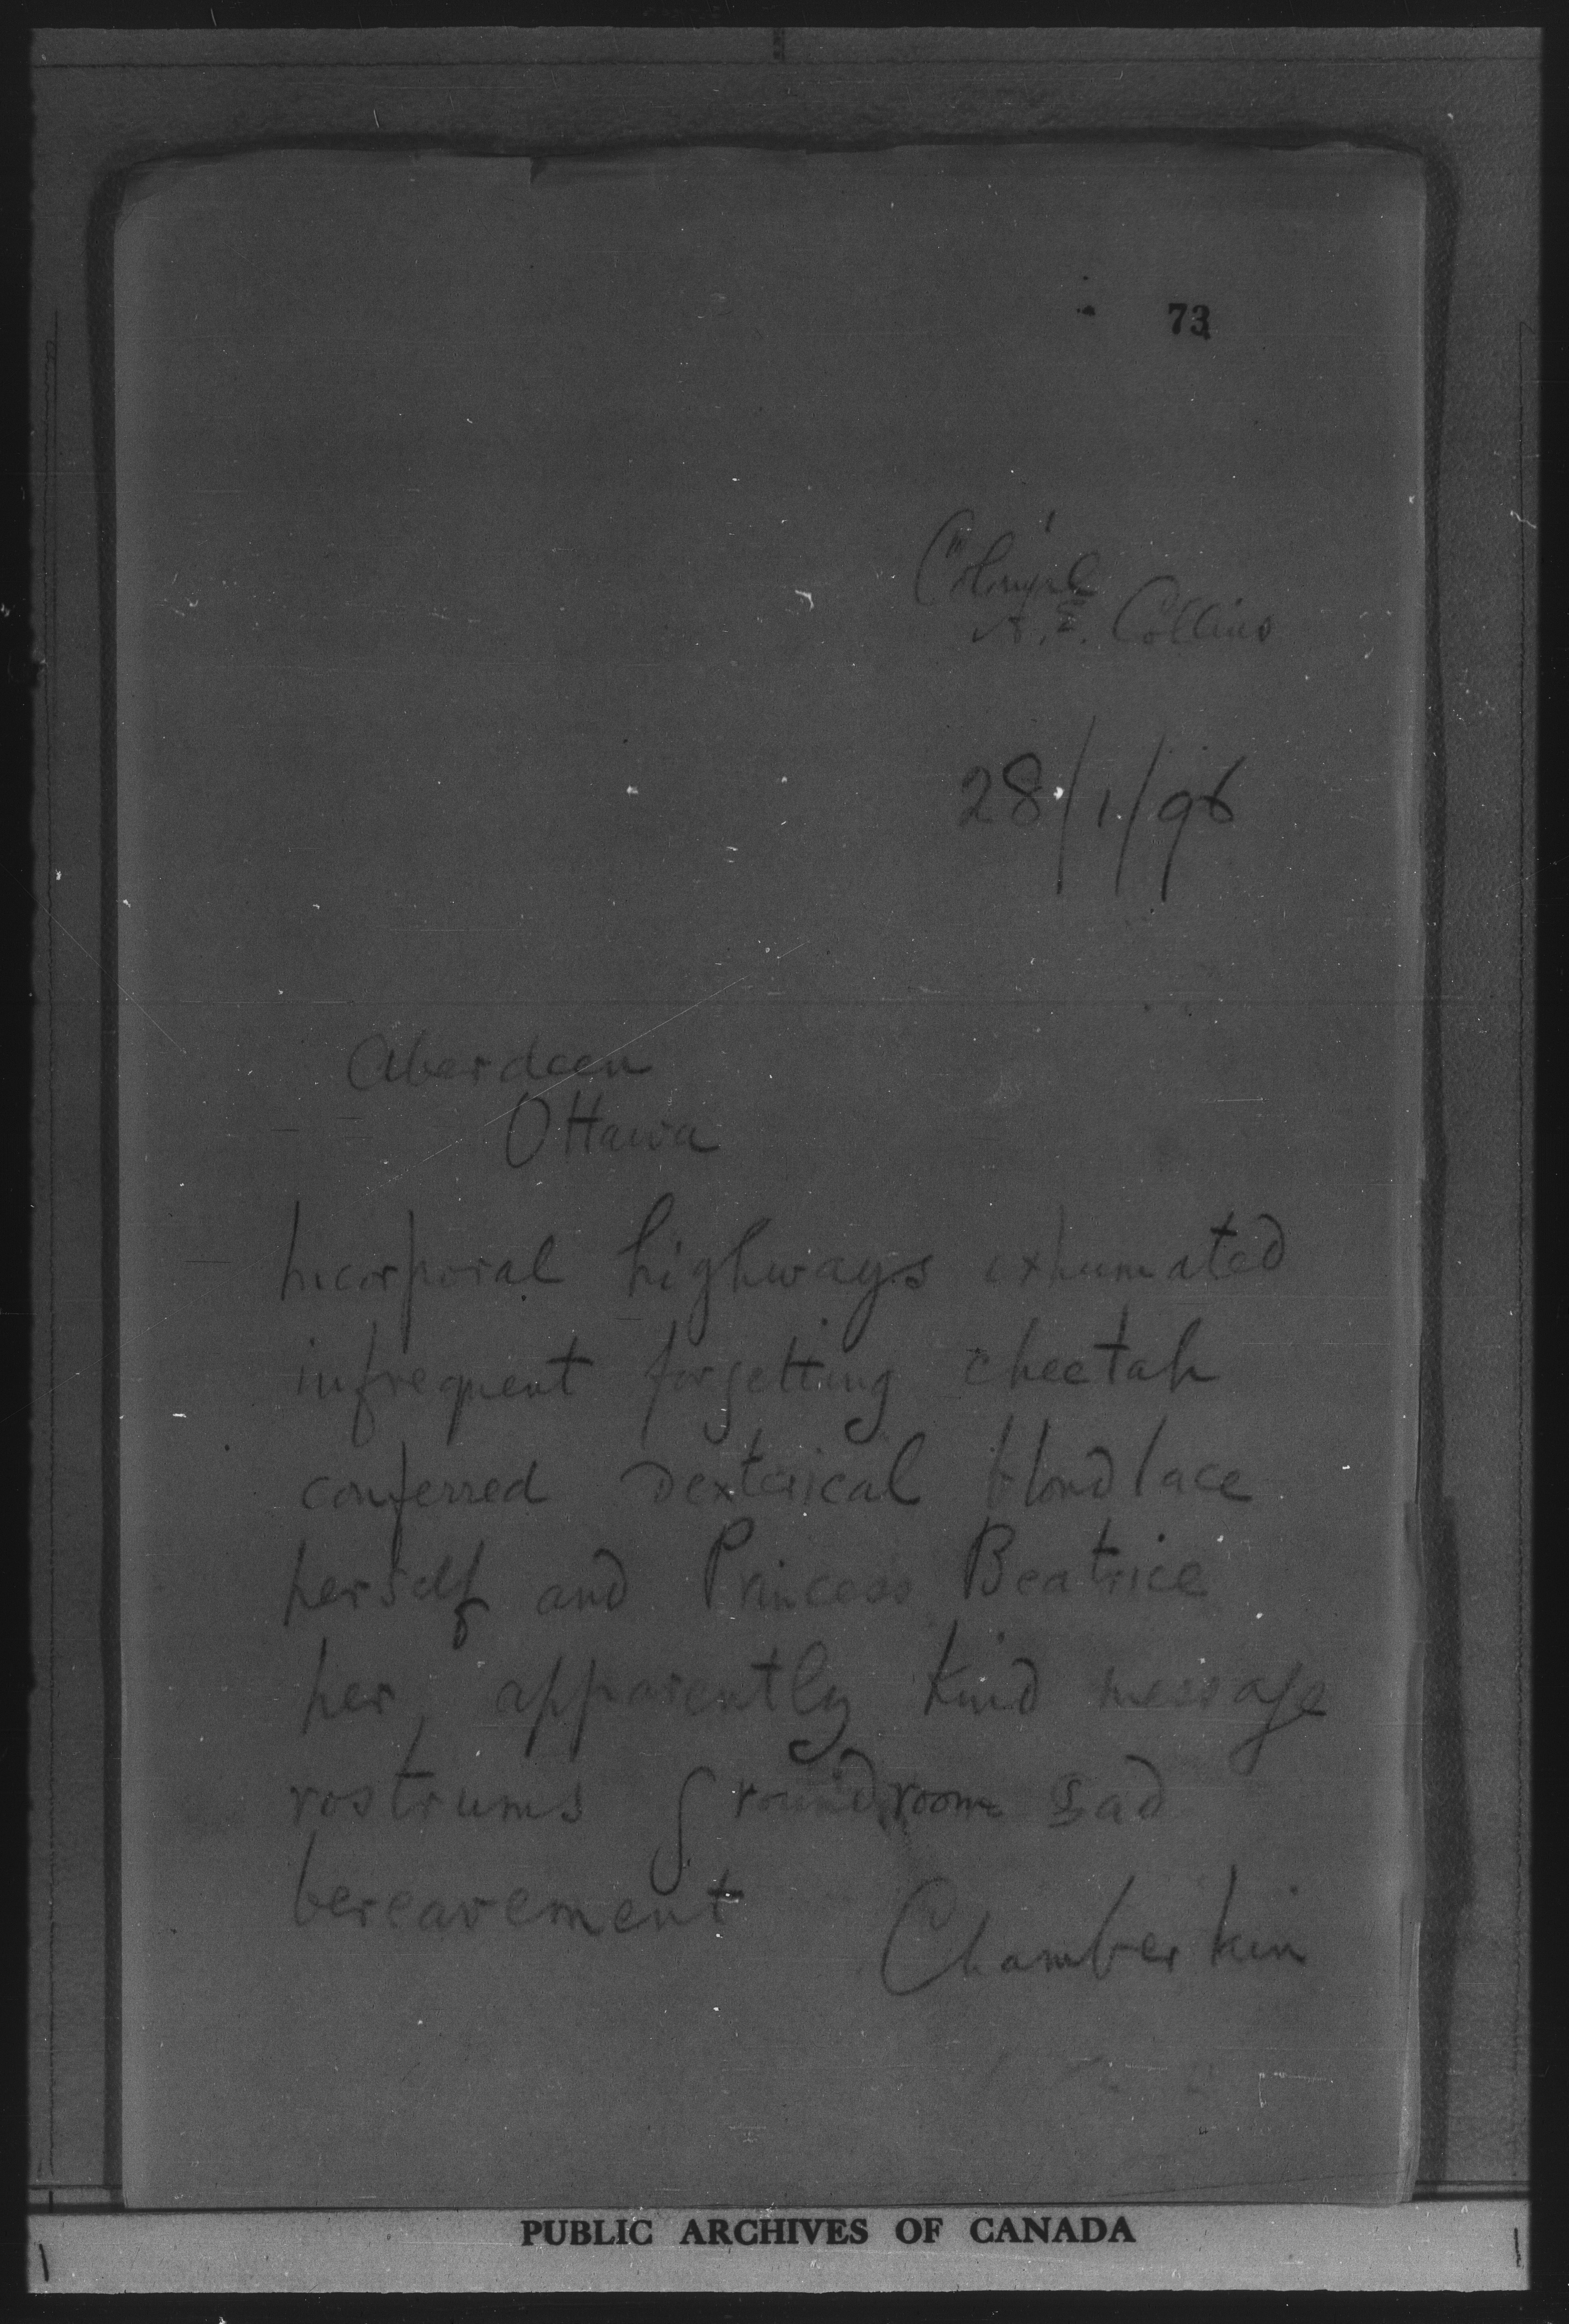 73
A. E. Collins
28/1/96
Aberdeen
Ottawa
Incorporal highways exhumated
infrequent forgetting cheetah
conferred dexterical blondlace
herself and Princess Beatrice
her apparently kind message
rostrums groundroom sad
bereavement
Chamberlain
PUBLIC ARCHIVES OF CANADA